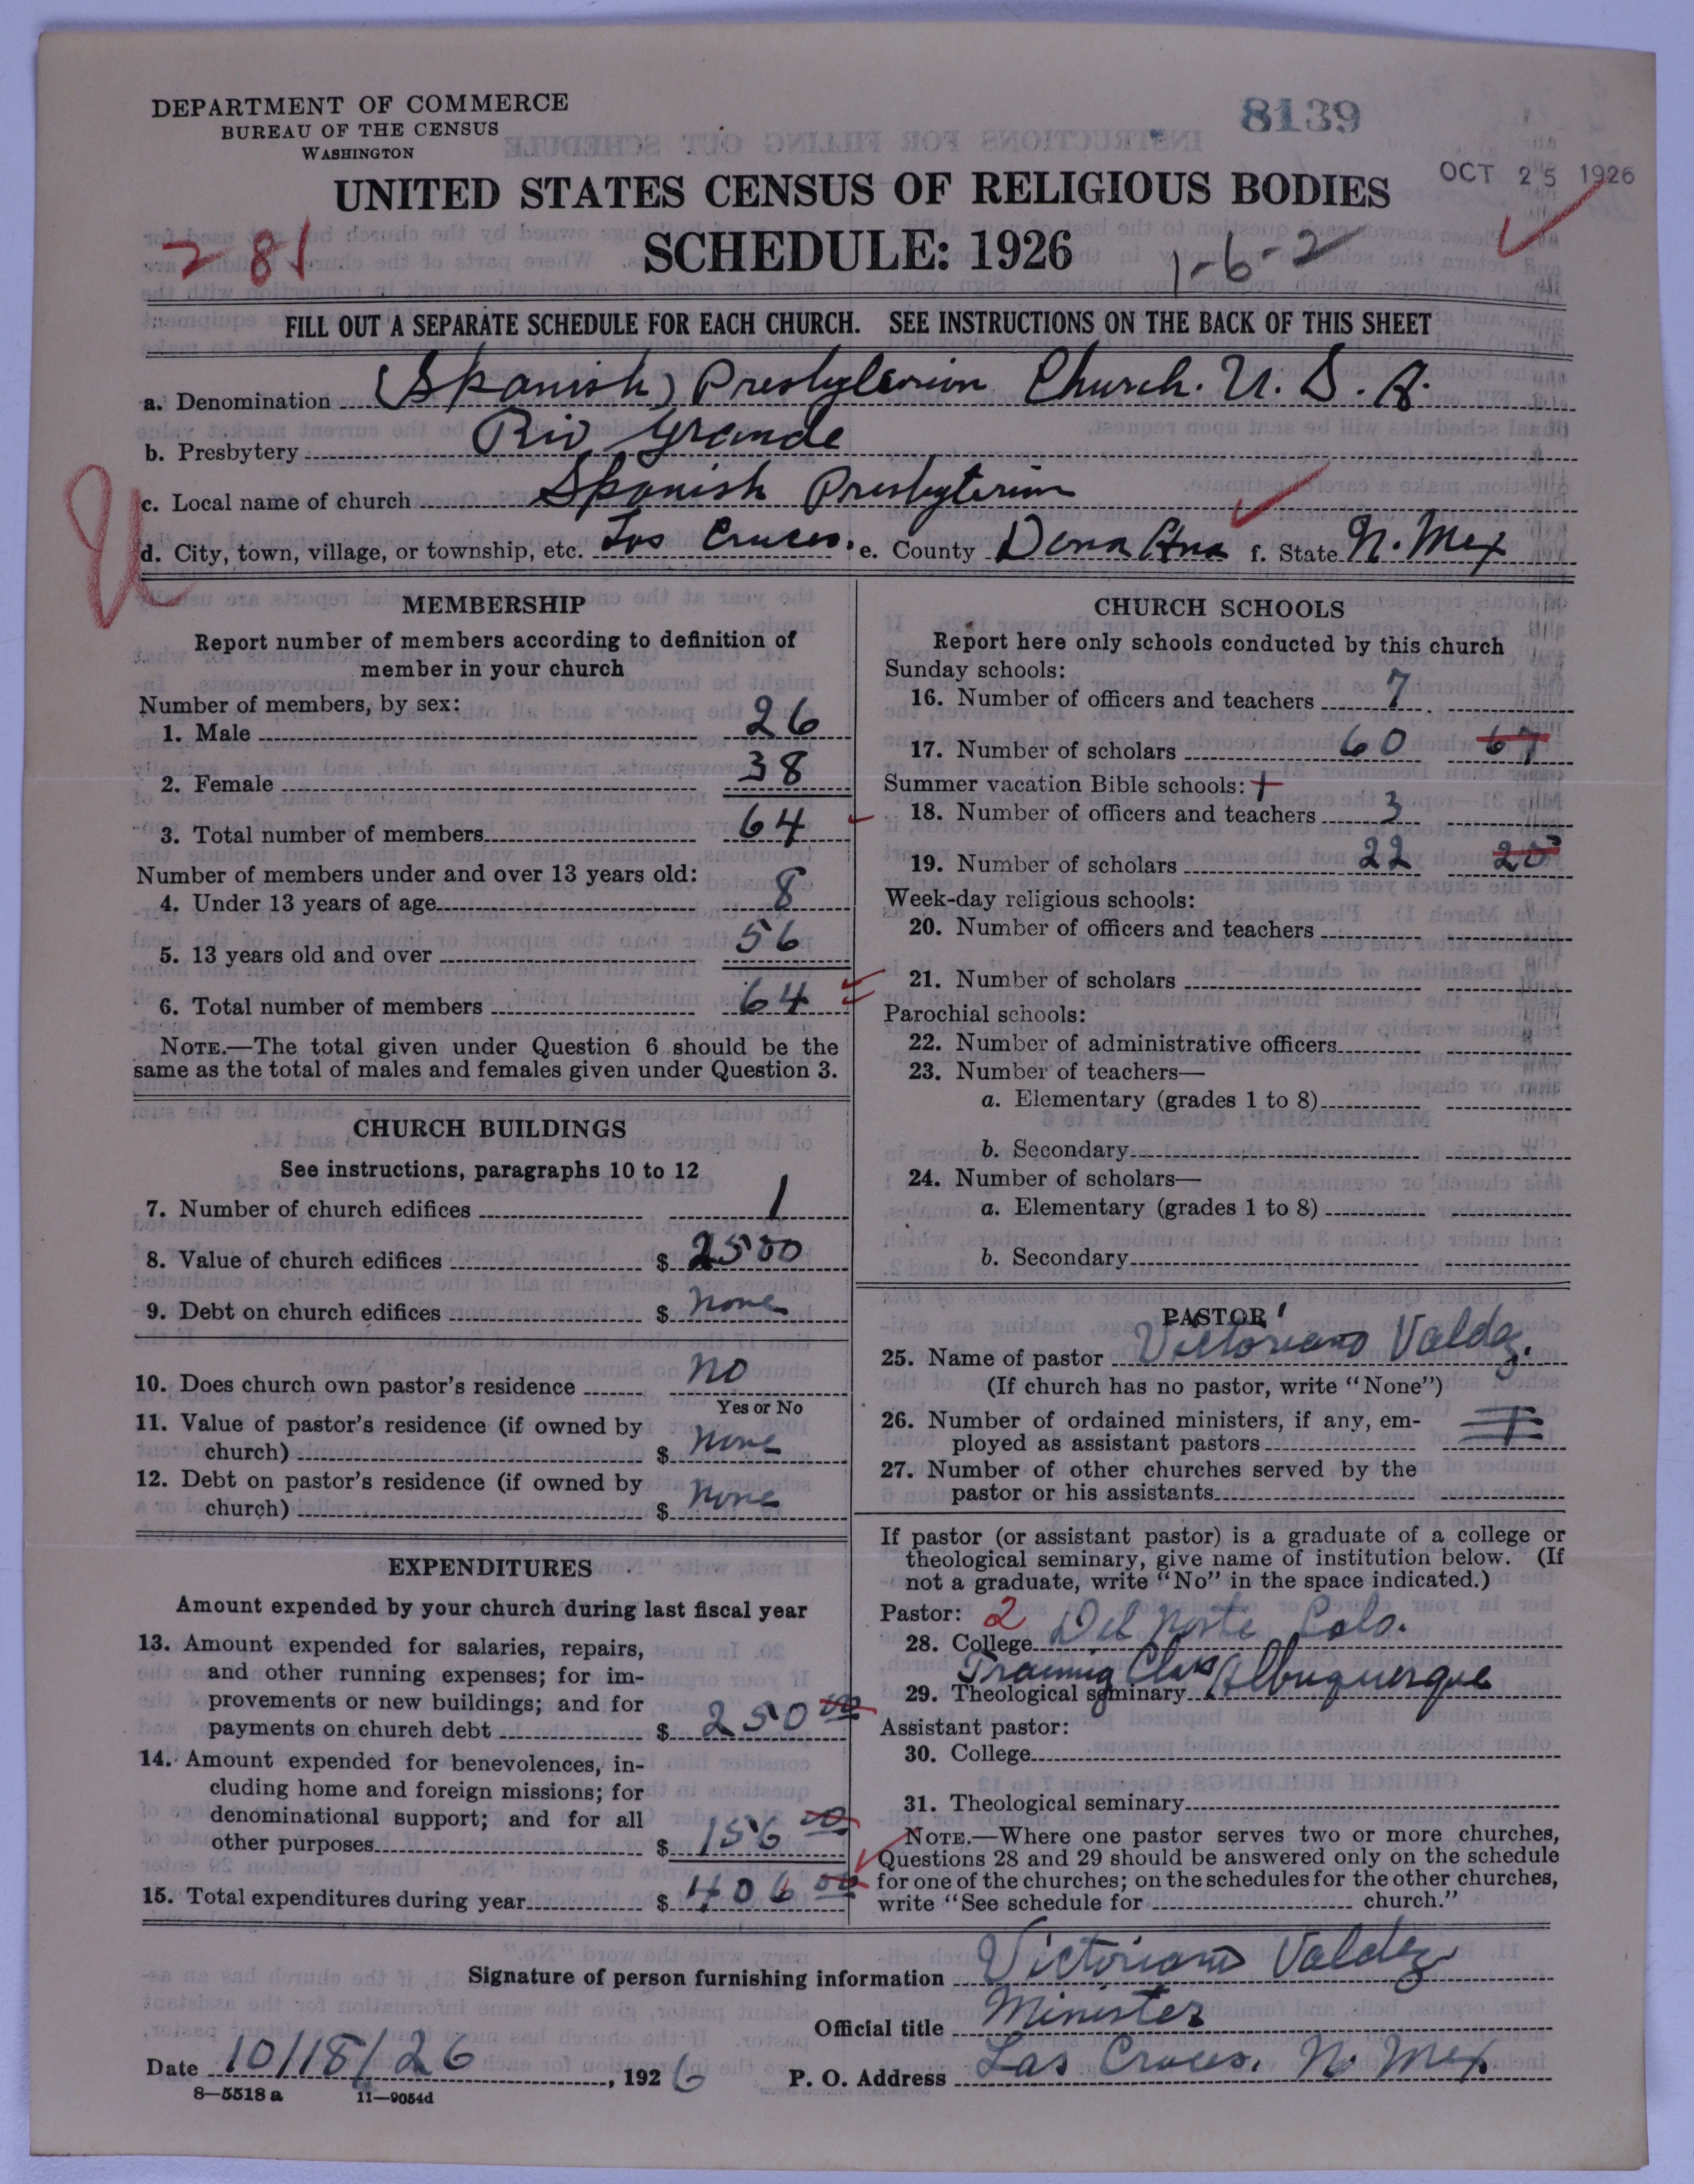 DEPARTMENT OF COMMERCE
BUREAU OF THE CENSUS
WASHINGTON
8139
OCT 25 1926
UNITED STATES CENSUS OF RELIGIOUS BODIES
SCHEDULE: 1926
281
1-6-2
FILL OUT A SEPARATE SCHEDULE FOR EACH CHURCH. SEE INSTRUCTIONS ON THE BACK OF THIS SHEET
a. Denomination (Spanish) Presbyterian Church. U. S. A.
b. Presbytery Rio Grande
c. Local name of church Spanish Presbyterian
d. City, town, village, or township, etc. Las Cruces. e. County Dona Ana f. State N. Mex
MEMBERSHIP
Report number of members according to definition of
member in your church
Number of members, by sex:
1. Male 26
2. Female 38
3. Total number of members 64
Number of members under and over 13 years old:
4. Under 13 years of age 8
5. 13 years old and over 56
6. Total number of members 64
NOTE.—The total given under Question 6 should be the
same as the total of males and females given under Question 3.
CHURCH BUILDINGS
See instructions, paragraphs 10 to 12
7. Number of church edifices 1
8. Value of church edifices $ 2500
9. Debt on church edifices $ none
10. Does church own pastor's residence no
Yes or No
11. Value of pastor's residence (if owned by
church) $ none
12. Debt on pastor's residence (if owned by
church) $ none
EXPENDITURES
Amount expended by your church during last fiscal year
13. Amount expended for salaries, repairs,
and other running expenses; for im-
provements or new buildings; and for
payments on church debt $ 250 00
14. Amount expended for benevolences, in-
cluding home and foreign missions; for
denominational support; and for all
other purposes $ 156 00
15. Total expenditures during year $ 406 00
CHURCH SCHOOLS
Report here only schools conducted by this church
Sunday schools:
16. Number of officers and teachers 7
17. Number of scholars 60 67
Summer vacation Bible schools: +
18. Number of officers and teachers 3
19. Number of scholars 22 25
Week-day religious schools:
20. Number of officers and teachers
21. Number of scholars
Parochial schools:
22. Number of administrative officers
23. Number of teachers—
a. Elementary (grades 1 to 8)
b. Secondary
24. Number of scholars—
a. Elementary (grades 1 to 8)
b. Secondary
PASTOR
25. Name of pastor Victoriano Valdez.
(If church has no pastor, write "None")
26. Number of ordained ministers, if any, em-
ployed as assistant pastors
27. Number of other churches served by the
pastor or his assistants
If pastor (or assistant pastor) is a graduate of a college or
theological seminary, give name of institution below. (If
not a graduate, write "No" in the space indicated.)
Pastor: 2
28. College Del Norte Colo.
Training Class Albuquerque
29. Theological seminary
Assistant pastor:
30. College
31. Theological seminary
NOTE.—Where one pastor serves two or more churches,
Questions 28 and 29 should be answered only on the schedule
for one of the churches; on the schedules for the other churches,
write "See schedule for church."
Signature of person furnishing information Victoriano Valdez
Official title Minister
Date 10/18/26, 1926 P. O. Address Las Cruces, N. Mex.
8—5518 a 11—9054d